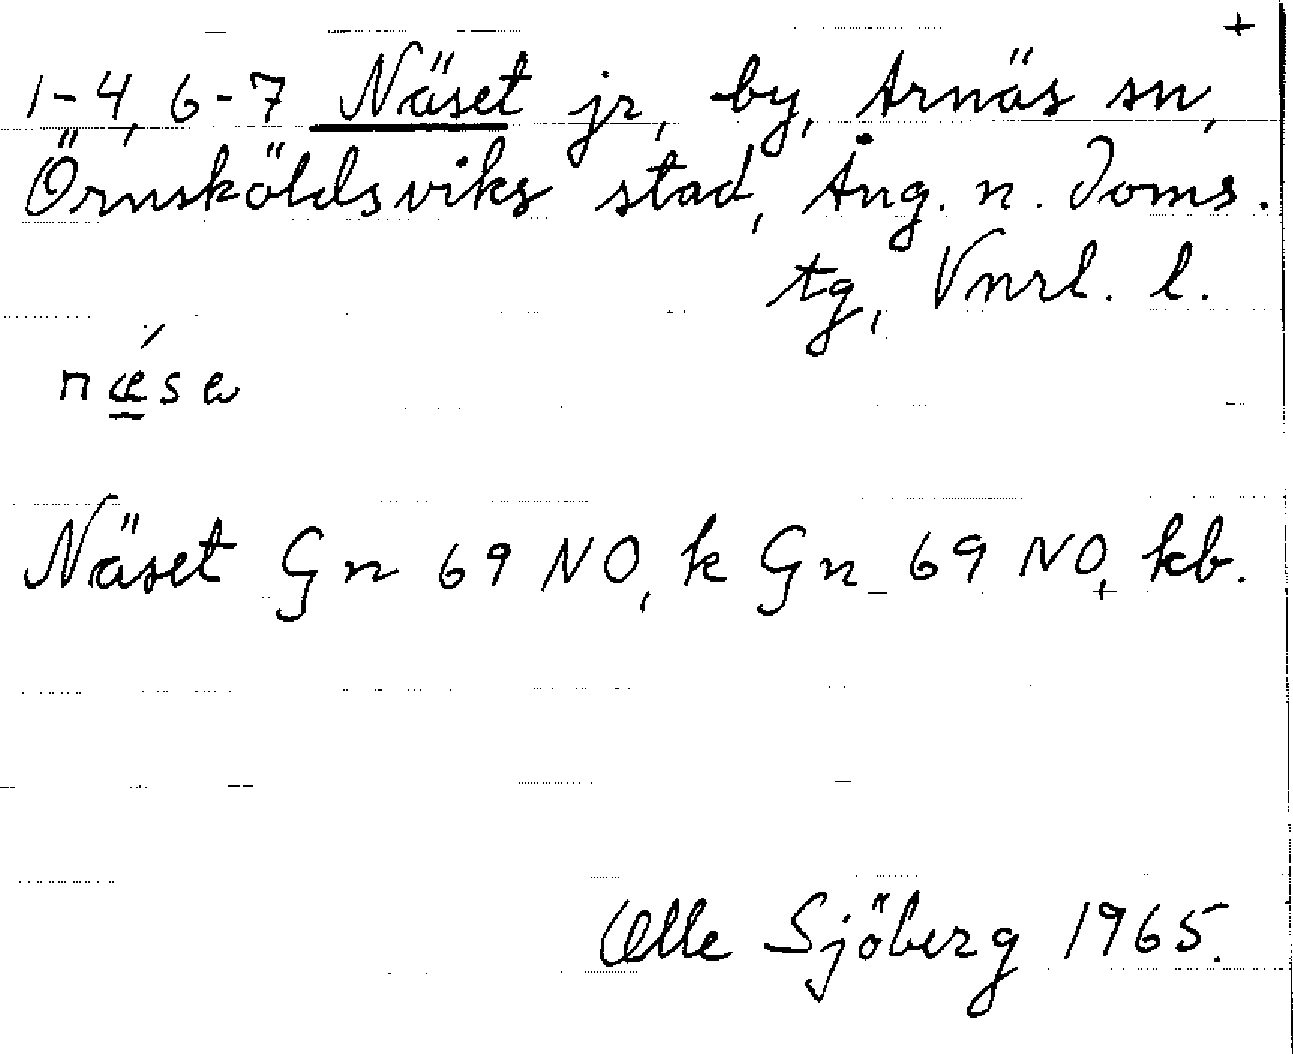 +
1-4, 6-7 Näset jr, by, Arnäs sn,
Örnsköldsviks stad, Ång. n. Doms.
tg, Vnrl. l.
nǽ̲sa
Näset Gn 69 NO, k Gn 69 NO, kb.
Olle Sjöberg 1965.